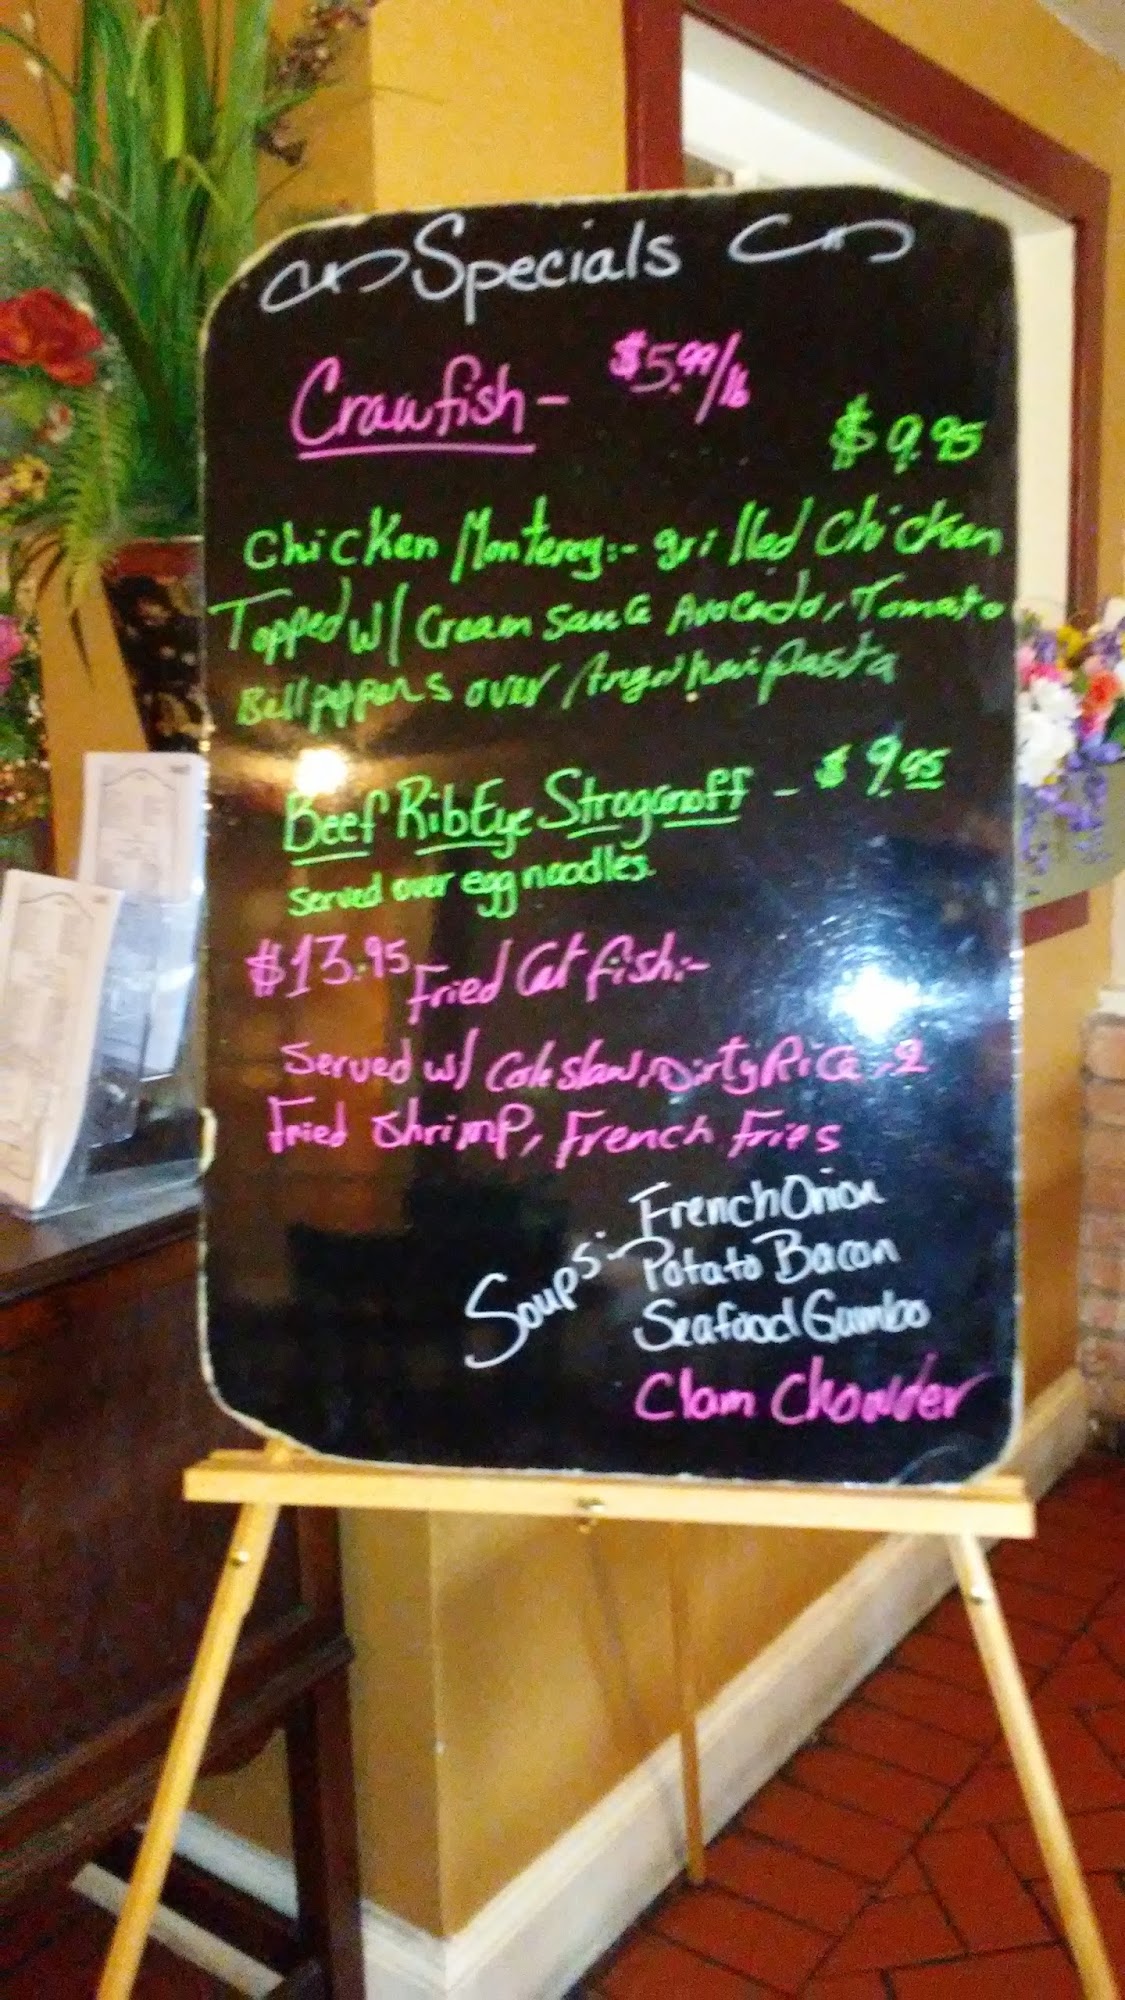 Specials
Crawfish - $5.99/lb
$9.95
Chicken Monterey:- grilled Chicken
Topped w/ Cream sauce Avocado, Tomato
Bell peppers over Angel hair pasta
Beef RibEye Stroganoff - $9.95
served over egg noodles.
$13.95 Fried Cat fish:-
Served w/ Cole slaw, Dirty Rice, 2
Fried Shrimp, French Fries
Soups:- French Onion
Potato Bacon
Seafood Gumbo
Clam Chowder